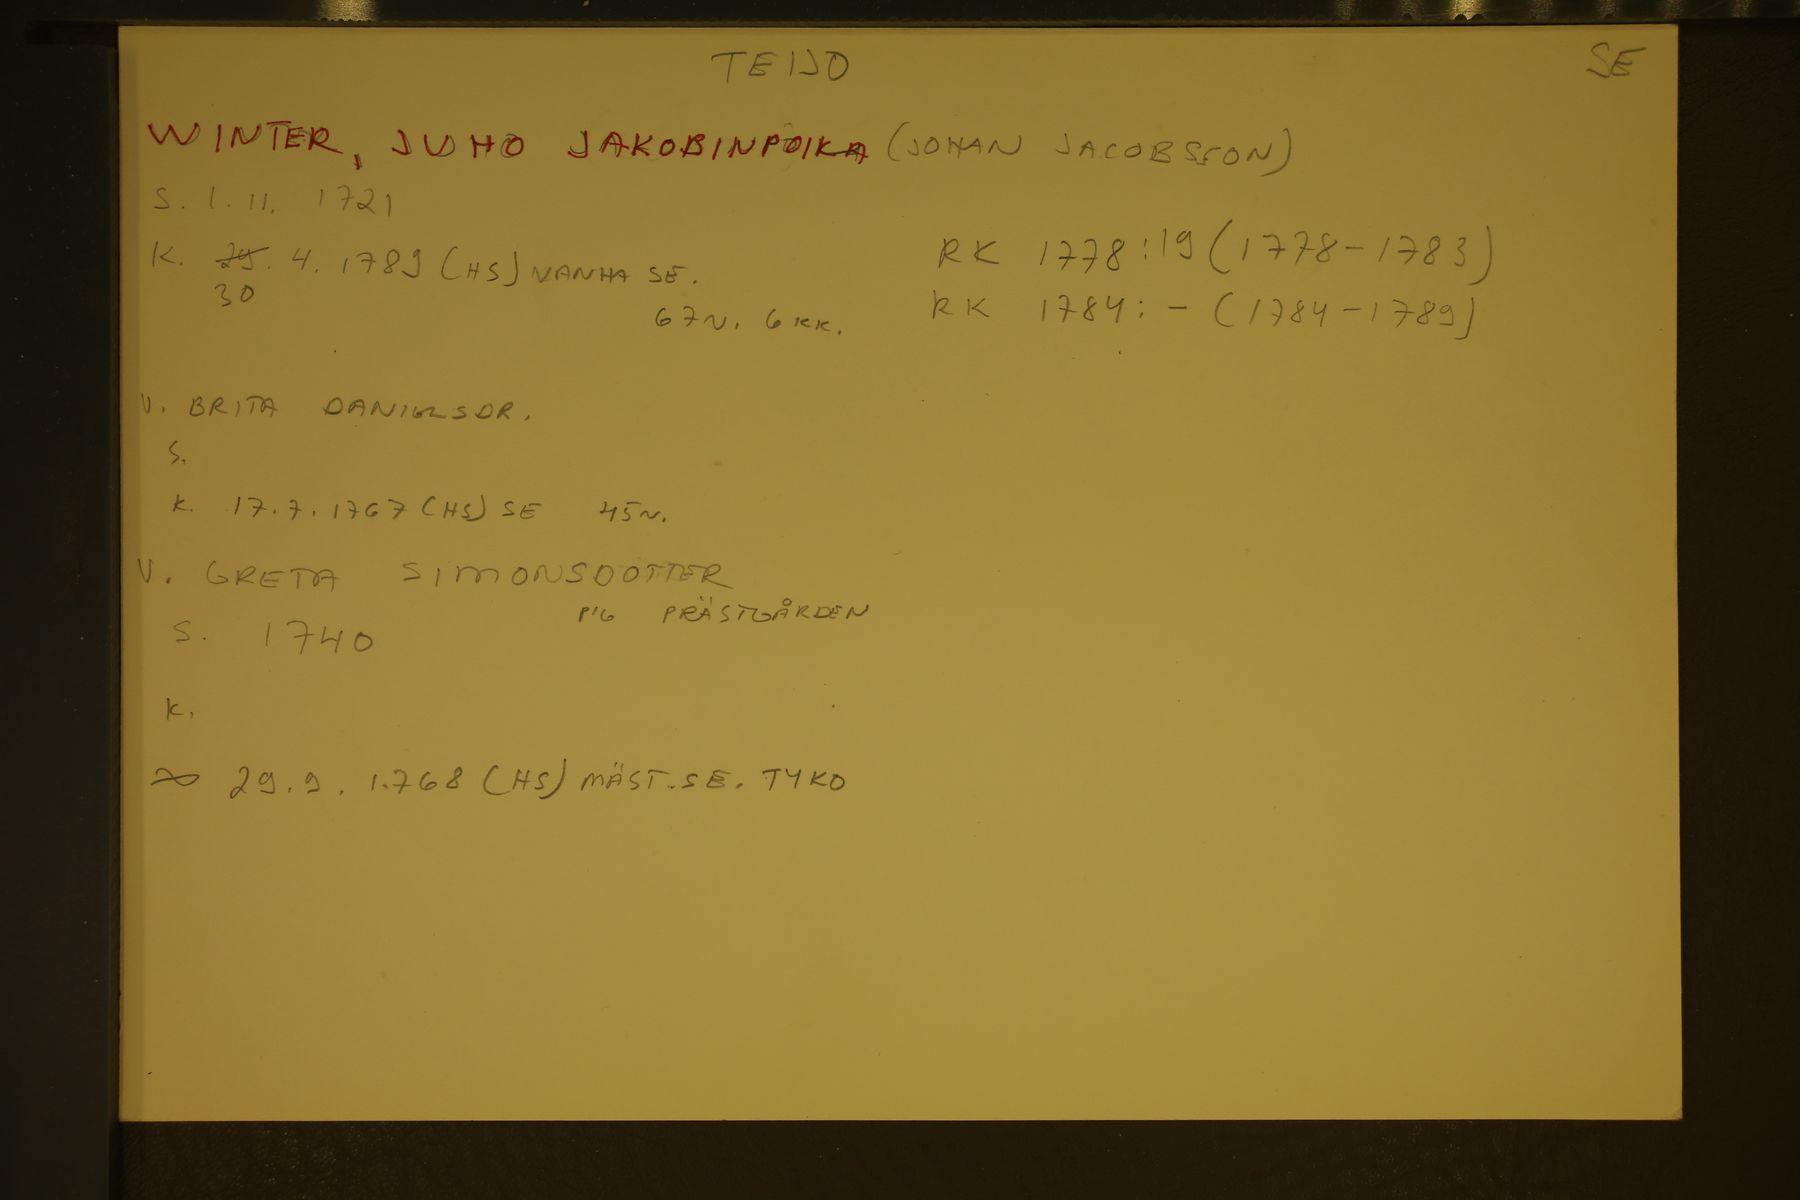 TEIJO SE
WINTER, JUHO JAKOBINPOIKA (JOHAN JACOBSSON)
S. 1.11. 1721
K. 29. 4. 1789 (HS) VANHA SE.
30
67 V. 6 KK.
RK 1778:19 (1778-1783)
RK 1784: - (1784-1789)
V. BRITA DANIELSDR.
S.
K. 17.7.1767 (HS) SE 45 V.
V. GRETA SIMONSDOTTER
PIG PRÄSTGÅRDEN
S. 1740
K.
∞ 29.9.1768 (HS) MÄST.SE. TYKO